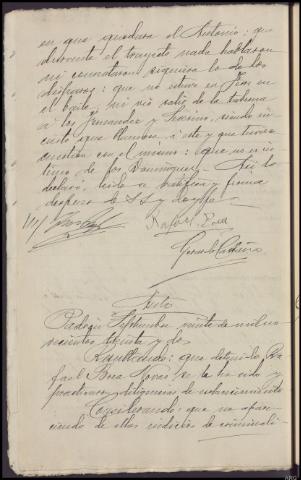 en que quedara el Antonio: que
durante el trayecto nada hablaron
ni comentaron siquiera lo de los
disparos: que no estuvo en Jein en
el baile, ni vio salir de la taberna
a los Fernandez y Iravino, siendo in-
cierto que llamase a este y que tuviera
cuestion con el mismo: que es an-
tiguo de los Dominguez. Asi lo
declaró, leida se ratifica y firma
despues de S.S. y doy fe.
Rafael Boea
Gerardo
Auto
Padron Septiembre veinte de mil no-
vecientos treinta y dos.
Resultando: que detenido Ra-
fael Boea Novas se le ha oido y
practicaron diligencias de esclarecimiento
Considerando: que no apare-
ciendo de ellas indicios de criminali-